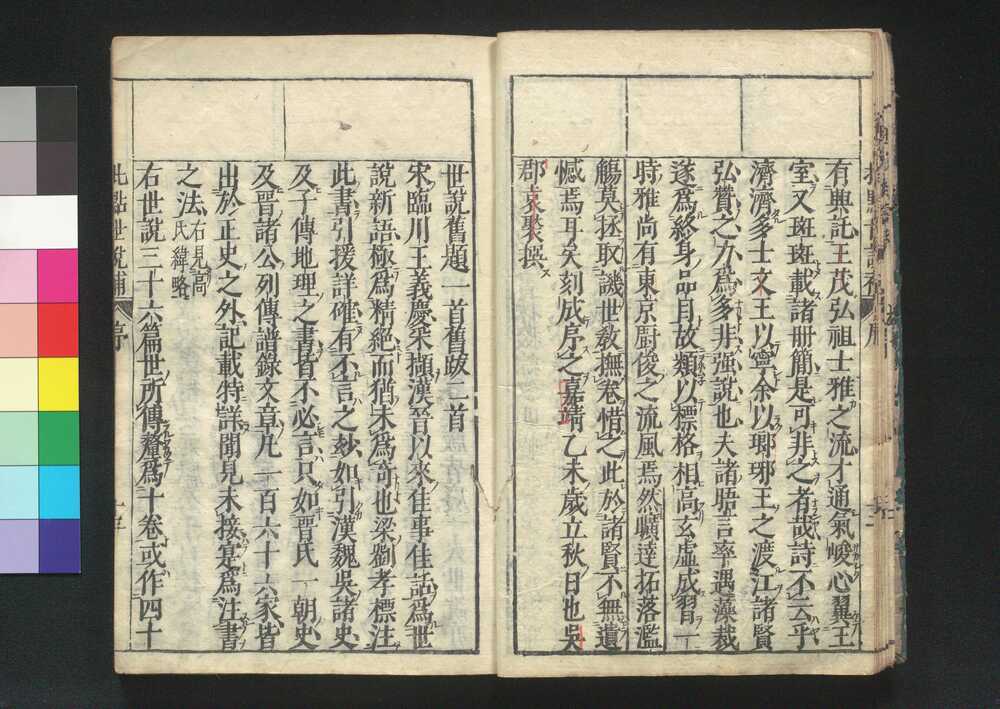 有興託王茂弘祖士雅之流才通氣峻心翼王
室又斑斑載諸册簡是可非之者哉詩不云乎
濟濟多士文王以寧余以瑯琊王之渡江諸賢
弘贊之力爲多非强說也夫諸晤言率遇藻裁
遂爲終身品目故類以標格相高玄虛成習一
時雅尚有東京厨俊之流風焉然曠達拓落濫
觴莫拯取譏世敎撫卷惜之此於諸賢不無遺
憾焉耳矣刻成序之嘉靖乙未歲立秋日也吳
郡袁褧撰
世說舊題一首舊跋二首
宋臨川王義慶采擷漢晉以來佳事佳話爲世
說新語極爲精絕而猶未爲奇也梁劉孝標注
此書引援詳確有不言之妙如引漢魏吳諸史
及子傳地理之書皆不必言只如晉氏一朝史
及晉諸公列傳譜錄文章凡一百六十六家皆
出於正史之外記載特詳聞見未接寔爲注書
之法右見高氏緯略
右世說三十六篇世所傳釐爲十卷或作四十
批點世說補 序